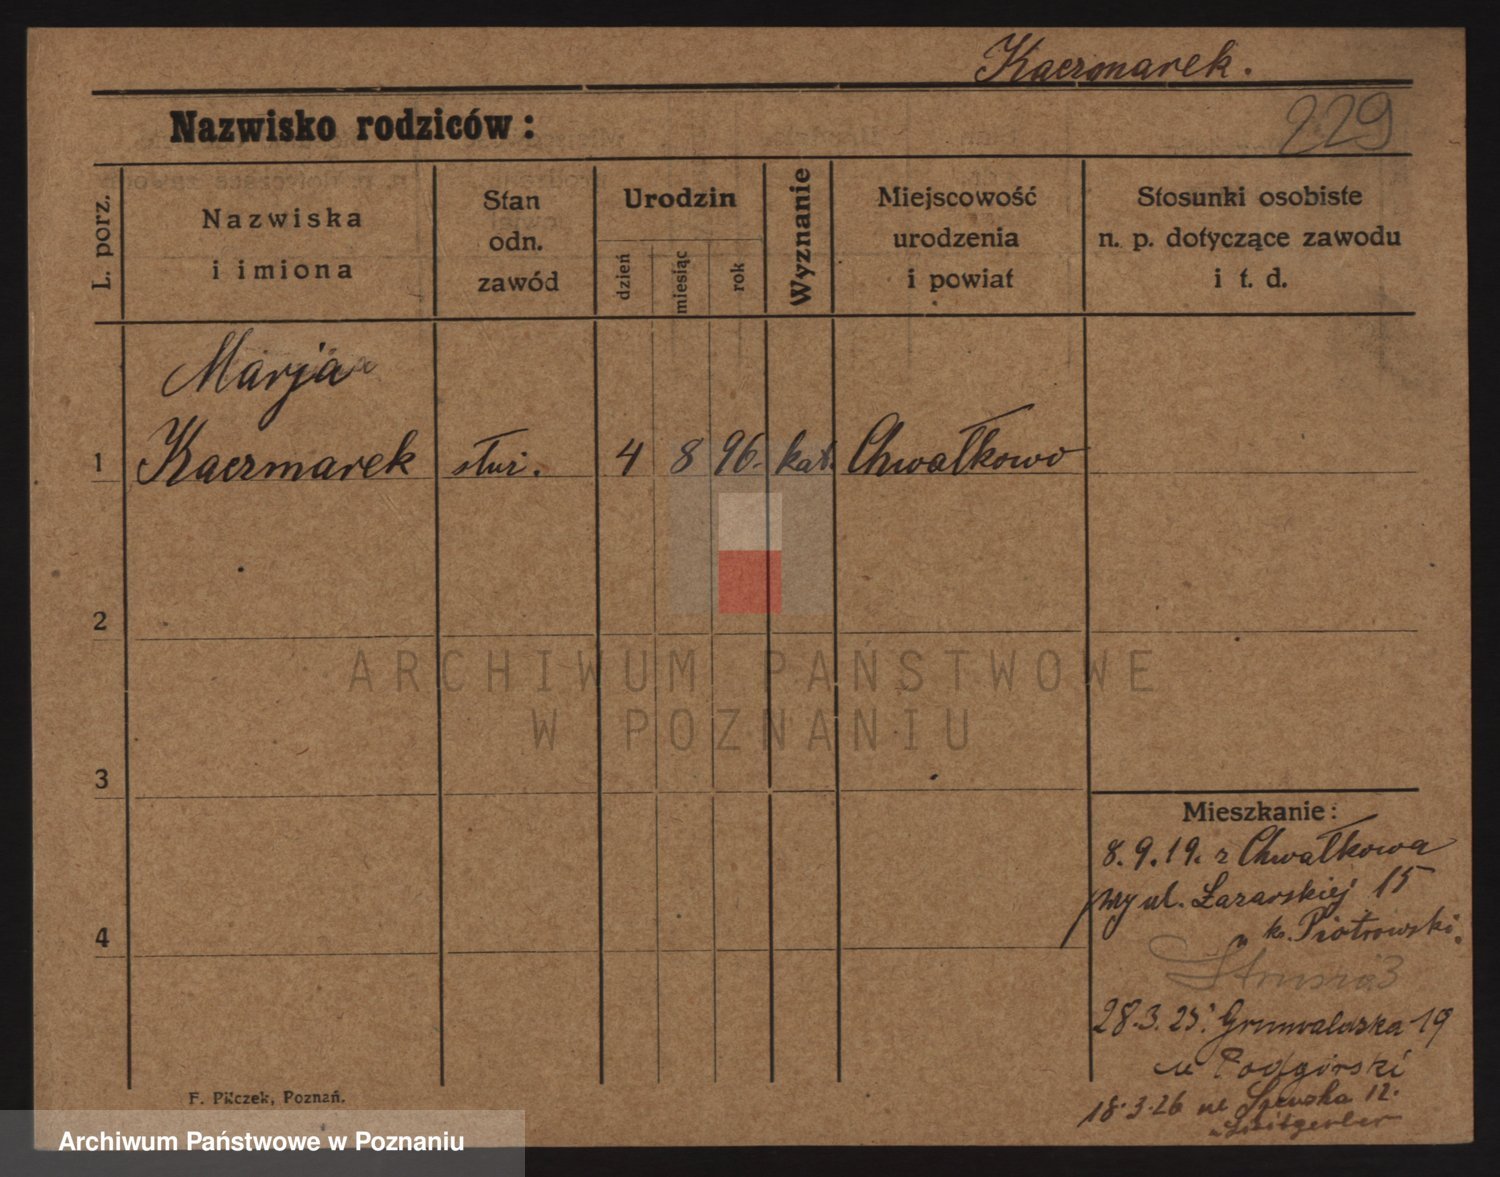 Kaczmarek.
229
Nazwisko rodziców:
L. porz.
Nazwiska
i imiona
Stan
odn.
zawód
Urodzin
dzień
miesiąc
rok
Wyznanie
Miejscowość
urodzenia
i powiat
Stosunki osobiste
n. p. dotyczące zawodu
i t. d.
Marja
1 Kaczmarek służ. 4 8 96. kat. Chwałkowo
2
3
4
ARCHIWUM PAŃSTWOWE
W POZNANIU
Mieszkanie:
8.9.19. z Chwałkowa
ul. Łazarskiej 15
Piotrowski.
3
28.3.25. Grunwaldzka 19
u Podgórski
18.3.26 ul Szewska 12.
F. Pilczek, Poznań.
Archiwum Państwowe w Poznaniu